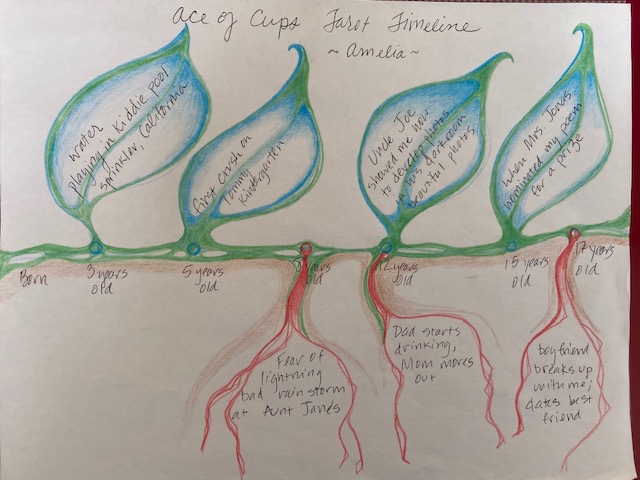 Ace of Cups Tarot Timeline
~ Amelia ~
water
playing in Kiddie Pool
sprinkler, California
first crush on
Tommy
Kindergarten
Uncle Joe
showed me how
to develop photos
in his darkroom
beautiful photos
When Mrs. Jonas
nominated my poem
for a prize
Born
3 years
old
5 years
old
8 years
old
12 years
old
15 years
old
17 years
old
Fear of
lightning
bad rain storm
at Aunt Jane's
Dad starts
drinking,
Mom moves
out
boyfriend
breaks up
with me;
dates best
friend